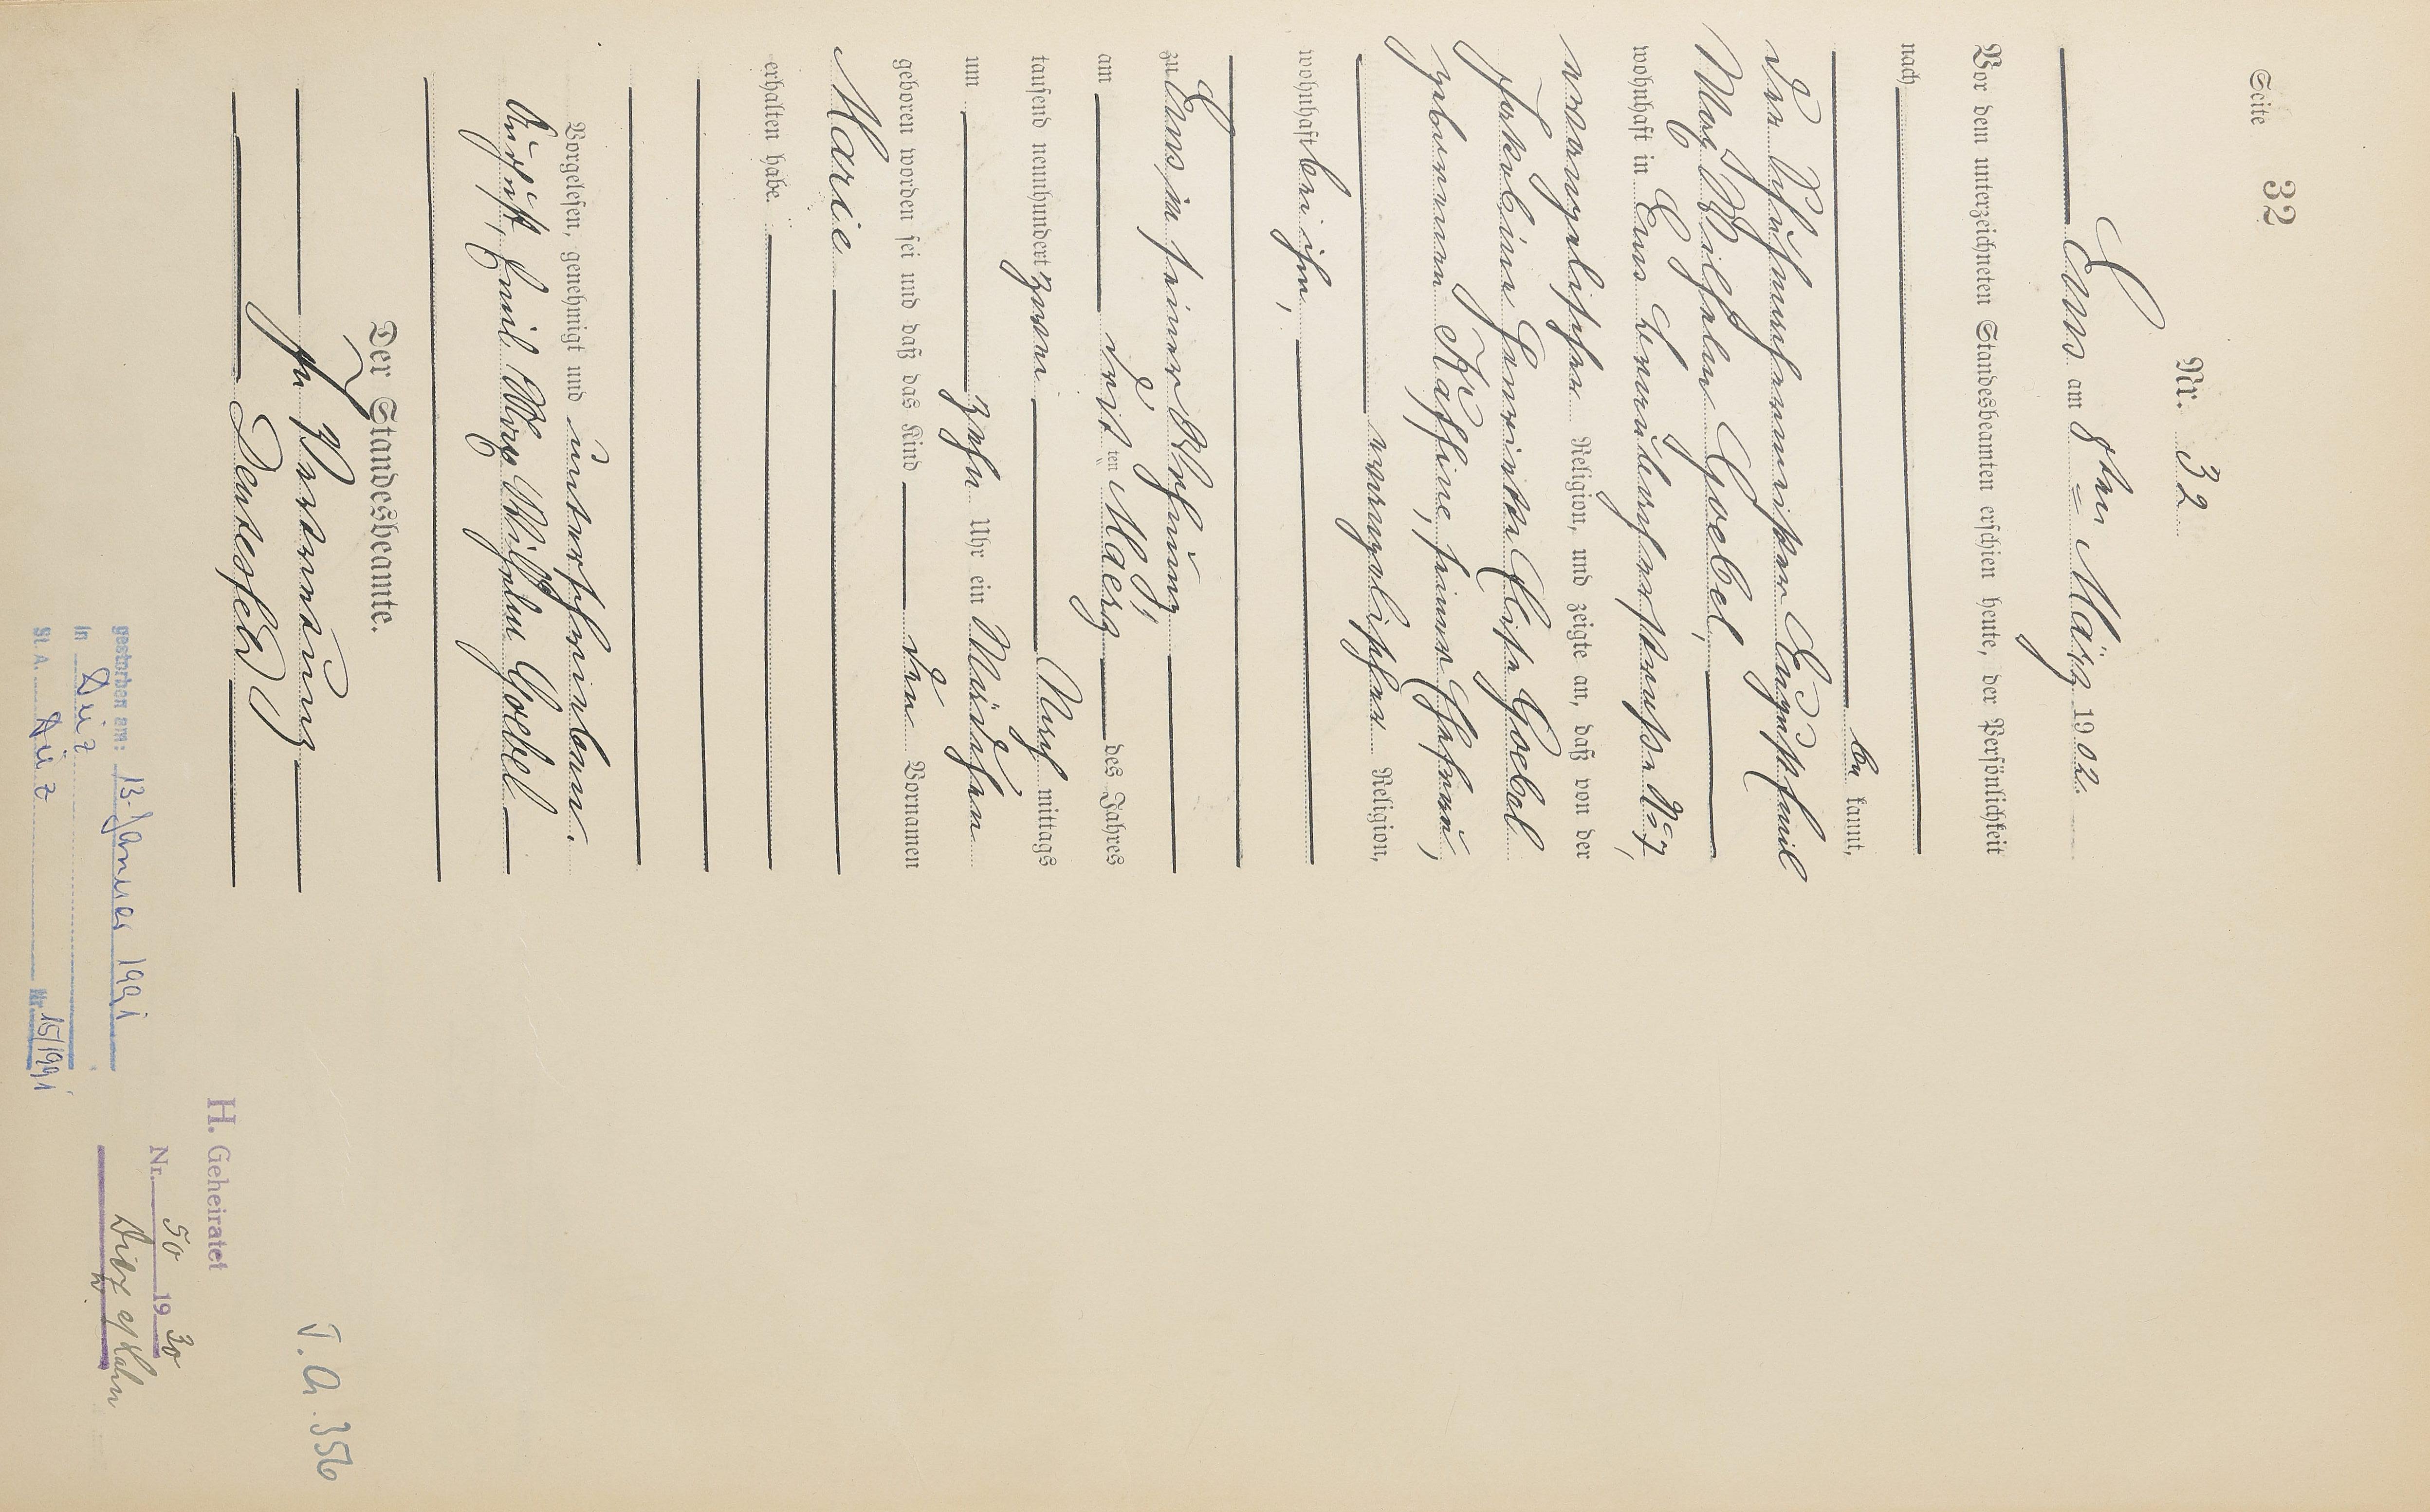 Seite 32
Nr. 32
Ems am 8ten März 1902.
Vor dem unterzeichneten Standesbeamten erschien heute, der Persönlichkeit
nach
bekannt,
der August Emil
Max Wilhelm Goebel,
wohnhaft in Ems No 7,
evangelischer Religion, und zeigte an, daß von der
Jakobine Henriette Elise Goebel
geborenen Kaffine, seiner Ehefrau,
evangelischer Religion,
wohnhaft bei ihm,
zu Ems, in seiner Wohnung
am dritten Maerz des Jahres
tausend neunhundert zwei Nachmittags
um zehn Uhr ein Mädchen
geboren worden sei und daß das Kind den Vornamen
Marie
erhalten habe.
Vorgelesen, genehmigt und unterschrieben.
August, Emil Max Wilhelm Goebel
Der Standesbeamte.
In Vertretung
Deutesfeld
H. Geheiratet
Nr. 50 1930
Diez a/Lahn
J. A. 356
gestorben am: 13. Januar 1991
in Diez
St. A. Diez Nr. 15/1991